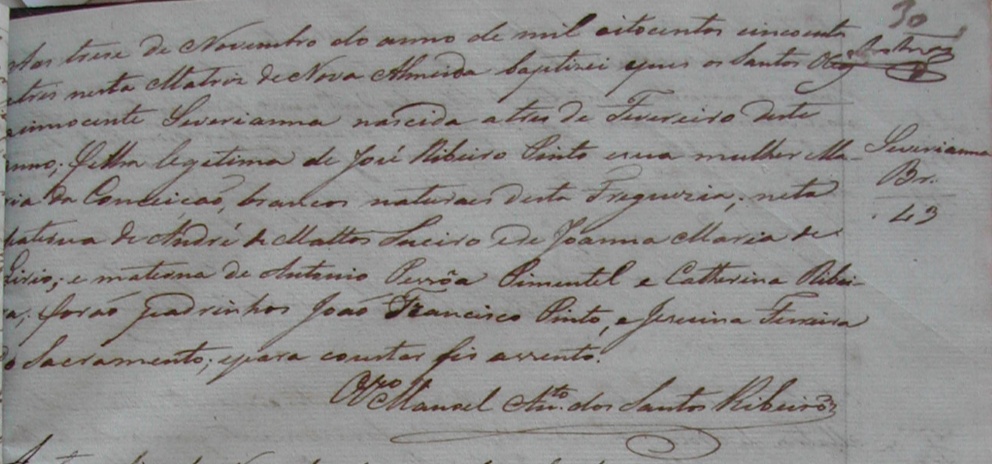 Aos trese de Novembro do anno de mil oitocentos cincoenta
etres nesta Matriz de Nova Almeida baptizei epus os Santos
innocente Severianna nascida atres de Fevereiro deste
anno; filha legitima de José Ribeiro Pinto esua mulher Ma-
ria da Conceição, brancos naturaes desta Freguezia; neta
paterna de André de Mattos Sueiro ede Joanna Maria de
Lirio; e materna de Antonio Pimentel e Catherina Ribei-
ra; forão padrinhos João Francisco Pinto, e Ferreira
do Sacramento; epara constar fis assento.
Manoel Anto. dos Santos Ribeiro
30
Severianna
Br.
43